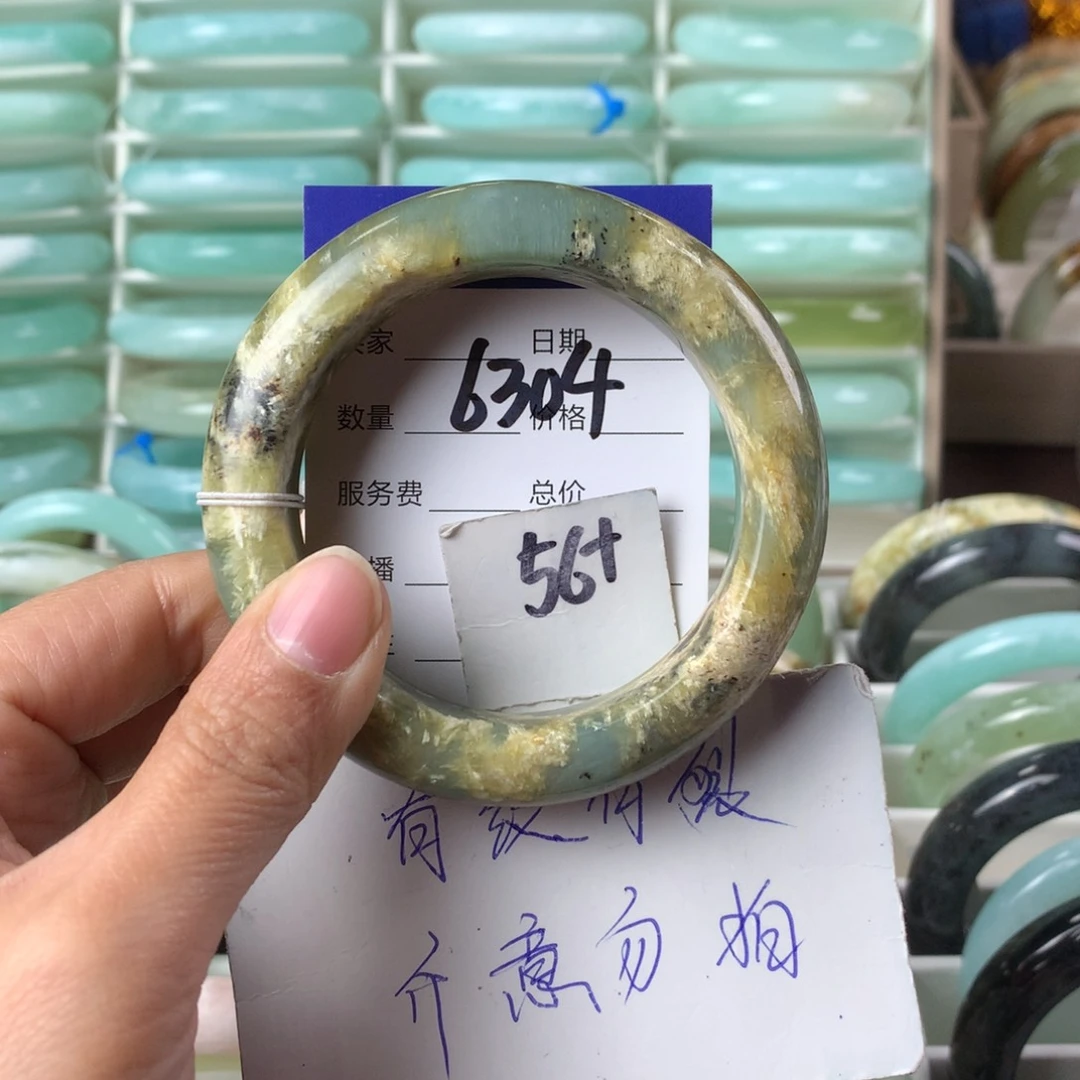 家 日期
6304
数量 价格
服务费 总价
播
56+
有纹有
介意勿拍